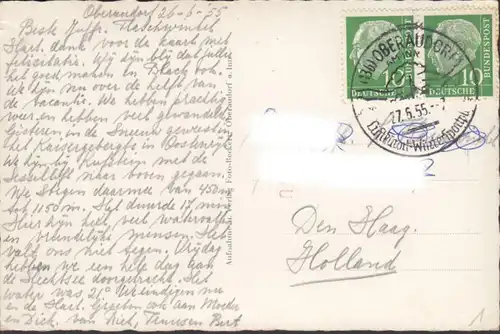 Oberaudorf 26-6-'55
Beste Juffr. Flaschwinkel
Hart. dank voor de kaart met
felicitatie. Wij zijn blij dat alles
het goed maken in
We zijn nu over de helft van
de vacantie. We hebben prachtig
weer en hebben veel gewandeld
Gisteren in de geweest
het Kaisergebergs in Oostenrijk
We zijn bij Kufstein met de
Sessellift naar boven gegaan.
We stegen daarmee van 450 m
tot 1150 m. Het duurde 17 min
Hier zijn heel veel watervallen
en vriendelijke mensen. Het
valt ons niet tegen. Vrijdag
hebben we een hele dag aan
de doorgebracht. Het
water was 21° We eindigen nu
en de Hart. Groeten ook aan Moeder
en Dick. van Riet, Bart
Aufnahme u. Verlag Foto-
Oberaudorf a. Inn
DEUTSCHE BUNDESPOST
10
DEUTSCHE BUNDESPOST
10
(13b) OBERAUDORF
27.6.55.-7
Luftkurort-Wintersportplatz
2
Den Haag.
Holland
1